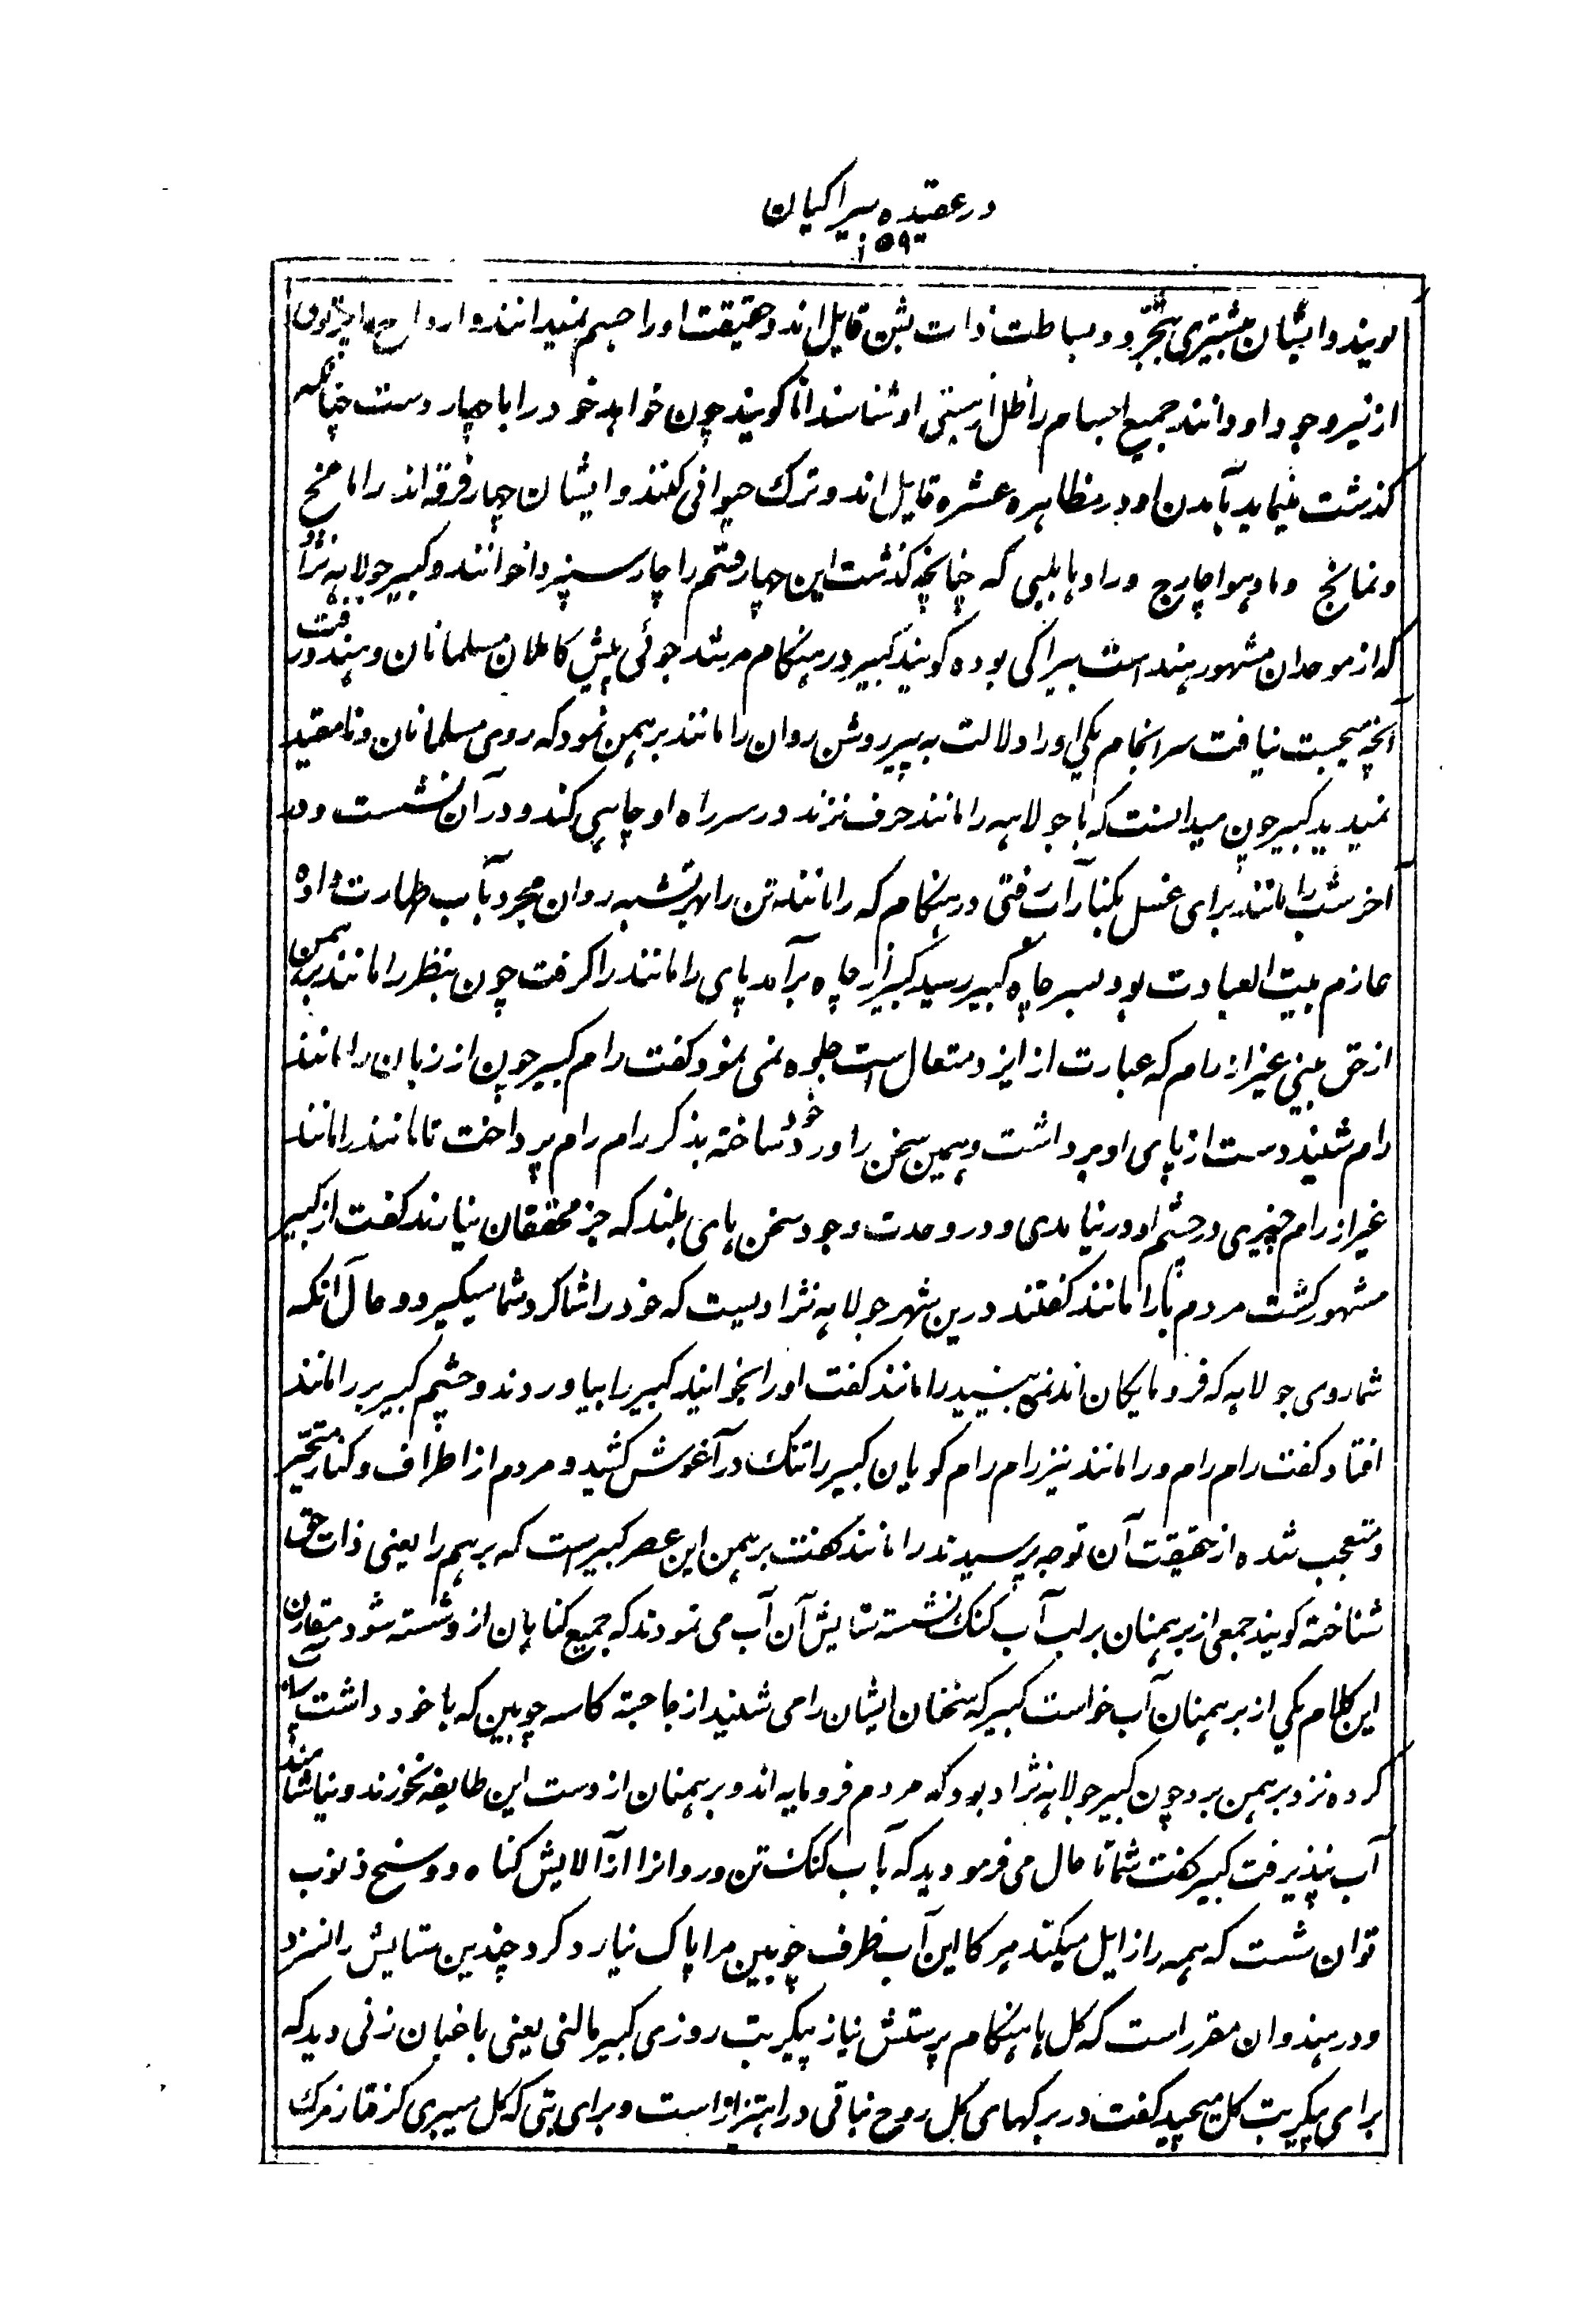 در عقیده بیراکیان
۱۵۹
کویند و ایشان بیشتری بتجرد و بساطت ذات بشن قایل اند و حقیقت او را جسم نمیدانند و ارواح را پرتوی
از نیر وجود او دانند جمیع اجسام را ظل از هستی او شناسند اما کویند چون خواهد خود را با چهار دست چنانکه
کذشت بنماید بآمدن او در مظاهره عشره قایل اند و ترک حیوانی کنند و ایشان چهار فرقه اند رامانج
و نمانج و مادهوا چارج و رادها بلبی که چنانچه کذشت این چهار قسم را چار سنپرداخوانند و کبیر جولاهه نژاد
که از موحدان مشهور هند است بیراکی بوده کویند کبیر در هنکام مرشد جوئی پیش کاملان مسلمانان و هنود رفت
آنچه میجست نیافت سرانجام یکی او را دلالت به پیر روشن روان رامانند برهمن نمود که روی مسلمانان و نامقید
نمیدید کبیر چون میدانست که با جولاهه رامانند حرف نزند در سر راه او چاهی کند و در آن نشست و در
آخر شب رامانند برای غسل بکنار آب رفتی در هنکام که رامانند تن را بهر تشبه روان مجرد بآب طهارت داده
عازم بیت العبادت بود بسر چاه کبیر رسید کبیر از چاه برآمد پای رامانند را کرفت چون بنظر رامانند برهمن
از حق بینی غیر از رام که عبارت از ایزد متعال است جلوه نمی نمود کفت رام کبیر چون از زبان رامانند
رام شنید دست از پای او برداشت و همین سخن را ورد خود ساخته بذکر رام رام پرداخت تا مانند رامانند
غیر از رام چیزی در چشم او در نیامدی و در وحدت وجود سخن های بلند که جز محققان نیارند کفت از کبیر
مشهور کشت مردم با رامانند کفتند درین شهر جولاهه نژادیست که خود را شاکرد شما میکیرد و حال آنکه
شما روی جولاهه که فرومایکان اند نمی بینید رامانند کفت او را بخوانید کبیر را بیاوردند و چشم کبیر بر رامانند
افتاد کفت رام رام و رامانند نیز رام رام کویان کبیر را تنک در آغوش کشید و مردم از اطراف و کنار متحیر
و متعجب شده از حقیقت آن توجه پرسیدند رامانند کفت برهمن این عصر کبیر است که برهم را یعنی ذات حق
شناخته کویند جمعی از برهمنان بر لب آب کنک نشسته ستایش آن آب می نمودند که جمیع کناهان از و شسته شود مقارن
این کلام یکی از برهمنان آب خواست کبیر که سخنان ایشان را می شنید از جا جسته کاسه چوبین که با خود داشت پر آب
کرده نزد برهمن برد چون کبیر جولاهه نژاد بود که مردم فرومایه اند و برهمنان از دست این طایفه نخورند و نیاشامند
آب نپذیرفت کبیر کفت شما تا حال می فرمودید که بآب کنک تن و روانرا از آلایش کناه و وسخ ذنوب
توان شست که همه را زایل میکند هر کا این آب ظرف چوبین مرا پاک نیارد کرد چندین ستایش را نسزد
و در هندوان مقرر است که کل ها هنکام پرستش نیاز پیکر بت روزی کبیر مالنی یعنی باغبان زنی دید که
برای پیکر بت کل میچید کفت در برکهای کل روح نباتی در اهتزاز است و برای بتی که کل میبری کرفتار مرک